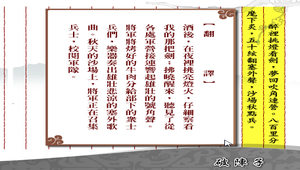 醉裡挑燈看劍，夢回吹角連營。八百里分
麾下炙，五十絃翻塞外聲，沙場秋點兵。
【翻譯】
酒後，在夜裡挑亮燈火，仔細察看
我的那把劍。拂曉醒來，聽見了從
各處軍營接連響起雄壯的號角聲。
將軍將烤好的牛肉分給部下的眾士
兵們，樂器奏出雄壯悲涼的塞外歌
曲。秋天的沙場上，將軍正在召集
兵士，校閱軍隊。
破陣子